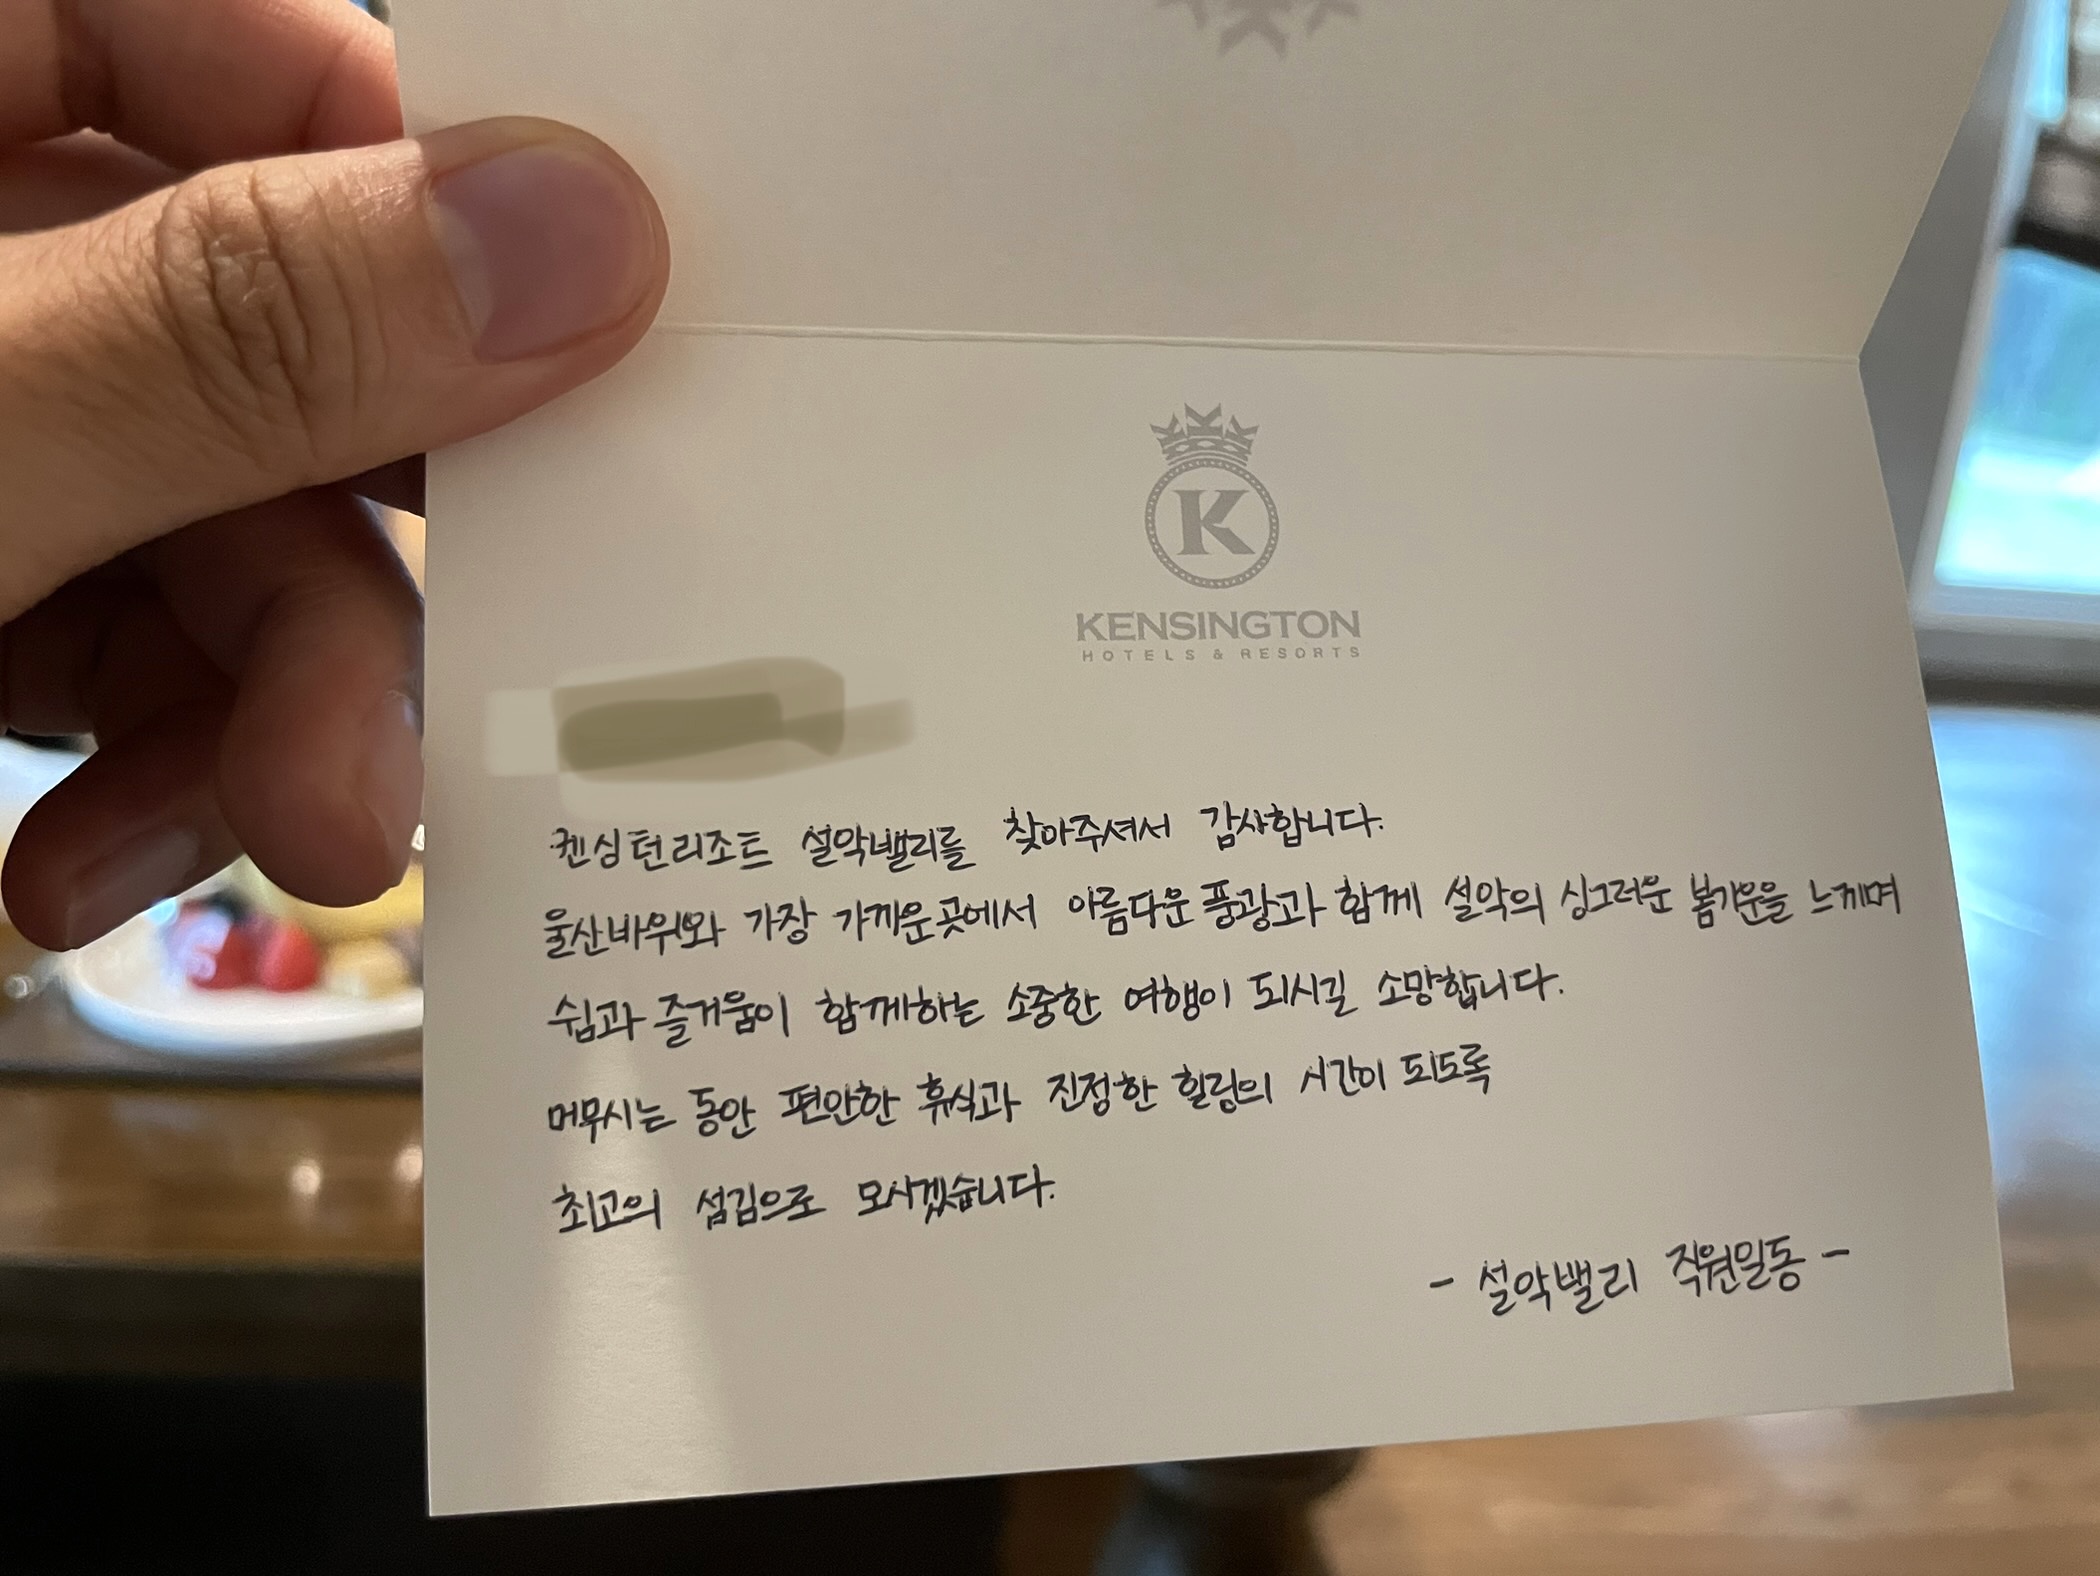 KENSINGTON
HOTELS & RESORTS
켄싱턴리조트 설악밸리를 찾아주셔서 감사합니다.
울산바위와 가장 가까운곳에서 아름다운 풍광과 함께 설악의 싱그러운 봄기운을 느끼며
쉼과 즐거움이 함께하는 소중한 여행이 되시길 소망합니다.
머무시는 동안 편안한 휴식과 진정한 힐링의 시간이 되도록
최고의 섬김으로 모시겠습니다.
- 설악밸리 직원일동 -